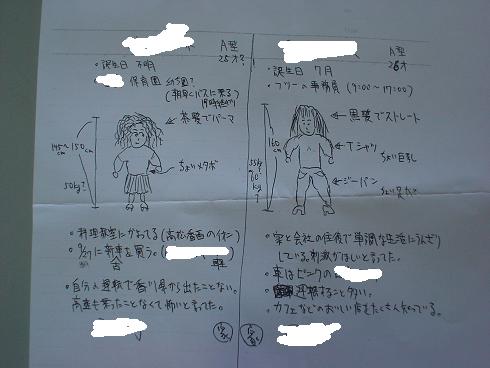 A型
25才?
・誕生日 不明
保育園 幼稚園?
(朝早くバスに乗る)
←茶髪でパーマ
145~150cm
ちょいメタボ
50kg?
・料理教室にかよってる(高松香西のイオン)
・9/27に新車を買う。
軽
・自分の運転で香川県から出たことない。
高速も乗ったことなくて怖いと言ってた。
A型
26才
・誕生日 7月
・フツーの事務員 (9:00~17:00)
←黒髪でストレート
160cm
←Tシャツ
ちょい巨乳
55kg
60kg?
←ジーパン
・家と会社の往復で単調な生活にうんざり
している。刺激がほしいと言ってた。
・車はピンクの
運転すること多い。
・カフェなどのおいしい店をたくさん知っている。